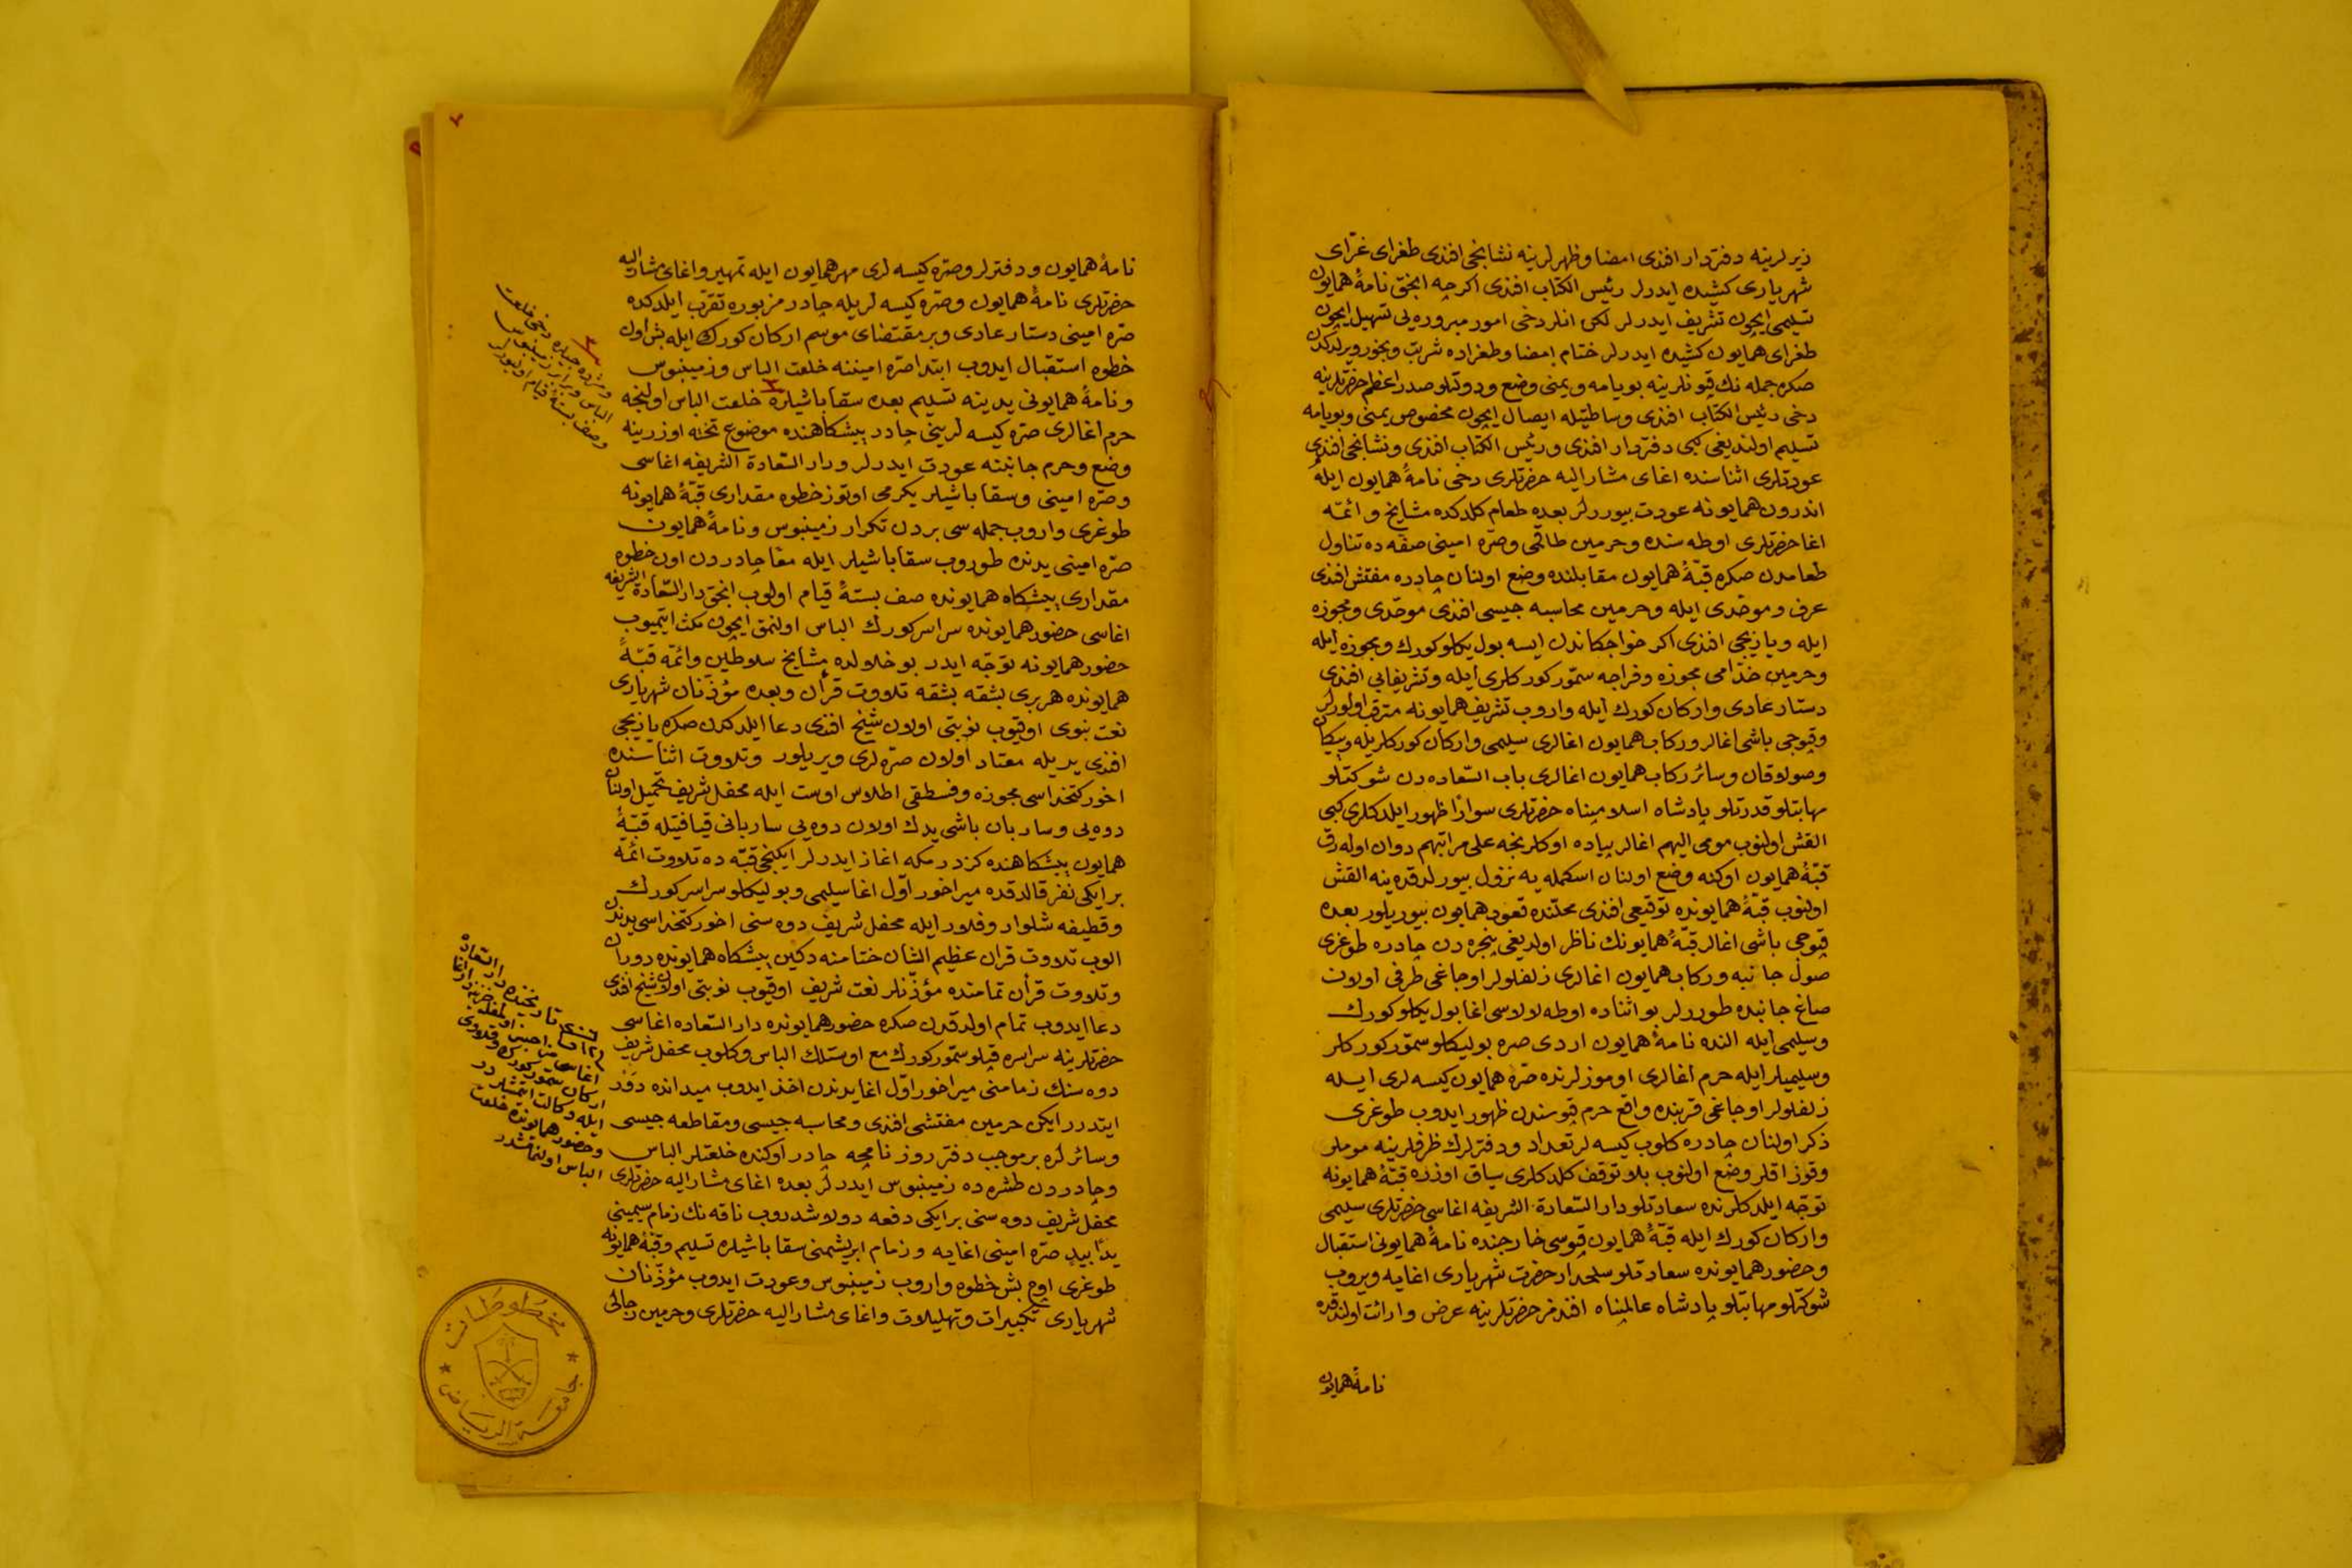 زیرلرینه دفتردار افندی امضا وظهرلرینه نشانجی افندی طغرای غرّای
شهریاری کشیده ایدرلر رئیس الکتاب افندی اکرچه انجق نامهٔ همایون
تسلیمی ایچون تشریف ایدرلر لکن انلر دخی امور مبروره یی تسهیل ایچون
طغرای همایون کشیده ایدرلر ختام امضا وطغراده شربت وبخور ویرلدکدن
صکره جمله نك قپونلرینه بویامه ویمنی وضع ودولتلو صدر اعظم حضرتلرینه
دخی رئیس الکتاب افندی وساطتیله ایصال ایچون مخصوص یمنی وبویامه
تسلیم اولندیغی کبی دفتردار افندی ورئیس الکتاب افندی ونشانجی افندی
عودتلری اثناسنده اغای مشار الیه حضرتلری دخی نامهٔ همایون ایله
اندرون همایونه عودت بیوررلر بعده طعام کلدکده مشایخ وائمّه
اغا حضرتلری اوطه سنده وحرمین طاقمی وصرّه امینی صفّه ده تناول
طعامدن صکره قبّهٔ همایون مقابلنده وضع اولنان چادره مفتش افندی
عرف وموحّدی ایله وحرمین محاسبه جیسی افندی موحّدی ومجوزه
ایله ویازیجی افندی اکر خواجکاندن ایسه بول یکلو کورك ومجوزه ایله
وحرمین خدّامی مجوزه وفراجه سمّور کورکلری ایله وتشریفاتی افندی
دستار عادی وارکان کورك ایله واروب تشریف همایونه مترقب اولورلر
وقپوجی باشی اغالر ورکاب همایون اغالری سلیمی وارکان کورکلریله وپیکان
وصولاقان وسائر رکاب همایون اغالری باب السّعاده دن شوکتلو
مهابتلو قدرتلو پادشاه اسلامپناه حضرتلری سوارًا ظهور ایلدکلری کبی
القش اولنوب مومی الیهم اغالر پیاده اوکلرنجه علی مراتبهم روان اوله رق
قبّهٔ همایون اوکنه وضع اولنان اسکمله یه نزول بیورلدقده ینه القش
اولنوب قبّهٔ همایونده توقیعی افندی محلّنده قعود همایون بیوریلور بعده
قپوجی باشی اغالر قبّهٔ همایونك ناظر اولدیغی پنجره دن چادره طوغری
صول جانبه ورکاب همایون اغالری زلفلولر اوجاغی طرفی اولان
صاغ جانبده طوررلر بو اثناده اوطه لالاسی اغا بول یکلو کورك
وسلیمی ایله النده نامهٔ همایون اردی صره بولیکلو سمّور کورکلر
وسلیمیلر ایله حرم اغالری اوموزلرنده صرّه همایون کیسه لری ایله
زلفلولر اوجاغی قربنده واقع حرم قپوسندن ظهور ایدوب طوغری
ذکر اولنان چادره کلوب کیسه لر تعداد ودفترلرك ظرفلرینه موملر
وقوزاقلر وضع اولنوب بلا توقف کلدکلری سیاق اوزره قبّهٔ همایونه
توجّه ایلدکلرنده سعادتلو دار السّعادة الشریفه اغاسی حضرتلری سلیمی
وارکان کورك ایله قبّهٔ همایون قپوسی خارجنده نامهٔ همایونی استقبال
وحضور همایونده سعادتلو سلحدار حضرت شهریاری اغایه ویروب
شوکتلو مهابتلو پادشاه عالمپناه افندمز حضرتلرینه عرض وارائت اولندقده
نامهٔ همایون
نامهٔ همایون ودفترلر وصرّه کیسه لری مهر همایون ایله تمهیر واغای مشار الیه
حضرتلری نامهٔ همایون وصرّه کیسه لریله چادر مزبوره تقرّب ایلدکده
صرّه امینی دستار عادی وبر مقتضای موسم ارکان کورك ایله بش اون
خطوه استقبال ایدوب ابتدا صرّه امیننه خلعت الباس وزمینبوس
ونامهٔ همایونی یدینه تسلیم بعده سقا باشیلره خلعت الباس اولنجه
حرم اغالری صرّه کیسه لرینی چادر پیشکاهنده موضوع تخته اوزرینه
وضع وحرم جانبنه عودت ایدرلر ودار السّعادة الشریفه اغاسی
وصرّه امینی وسقا باشیلر یکرمی اوتوز خطوه مقداری قبّهٔ همایونه
طوغری واروب جمله سی بردن تکرار زمینبوس ونامهٔ همایون
صرّه امینی یدنده طوروب سقا باشیلر ایله معًا چادردن اون خطوه
مقداری پیشکاه همایونده صف بستهٔ قیام اولوب انجق دار السّعادة الشریفه
اغاسی حضور همایونده سراسر کورك الباس اولنمق ایچون مکث ایتمیوب
حضور همایونه توجّه ایدر بو خلالده مشایخ سلاطین وائمّه قبّهٔ
همایونده هر بری بشقه بشقه تلاوت قرأن وبعده مؤذّنان شهریاری
نعت نبوی اوقیوب نوبتی اولان شیخ افندی دعا ایلدکدن صکره یازیجی
افندی یدیله معتاد اولان صرّه لری ویریلور وتلاوت اثناسنده
اخور کتخداسی مجوزه وفسطقی اطلاس اوست ایله محفل شریف تحمیل اولنان
دوه یی وساربان باشی یدك اولان دوه یی ساربانی قیافتیله قبّهٔ
همایون پیشکاهنده کزدرمکه اغاز ایدرلر ایکنجی قبّه ده تلاوت ائمّه
بر ایکی نفر قالدقده میراخور اوّل اغا سلیمی وبولیکلو سراسر کورك
وقطیفه شلوار وفلار ایله محفل شریف دوه سنی اخور کتخداسی یدندن
الوب تلاوت قران عظیم الشان ختامنه دکین پیشکاه همایونده دوران
وتلاوت قرأن تمامنده مؤذّنلر نعت شریف اوقیوب نوبتی اولان شیخ افندی
دعا ایدوب تمام اولدقدن صکره حضور همایونده دار السّعاده اغاسی
حضرتلرینه سراسره قپلو سمّور کورك مع اوستلك الباس وکلوب محفل شریف
دوه سنك زمامنی میراخور اوّل اغا یدندن اخذ ایدوب میدانده دَوْر
ایتدررایکن حرمین مفتشی افندی ومحاسبه جیسی ومقاطعه جیسی
وسائرلره بر موجب دفتر روزنامچه چادر اوکنده خلعتلر الباس
وچادردن طشره ده زمینبوس ایدرلر بعده اغای مشار الیه حضرتلری
محفل شریف دوه سنی بر ایکی دفعه دولاشدروب ناقه نك زمام سیمینی
یدًا بید صرّه امینی اغایه وزمام ابریشمنی سقا باشیلره تسلیم وقبّهٔ همایونه
طوغری اوچ بش خطوه واروب زمینبوس وعودت ایدوب مؤذّنان
شهریاری تکبیرات وتهلیلات واغای مشار الیه حضرتلری وحرمین رجالی
الباس وبرابر زمینبوس
وصف بستهٔ قیام اولورلر
تاریخنده دار السّعاده
ارکان سمّور کورك
ایله وکالت ایتمشلردر
وحضور همایونده خلعت
الباس اولنمامشدر
مخطوطات
جامعة الرياض